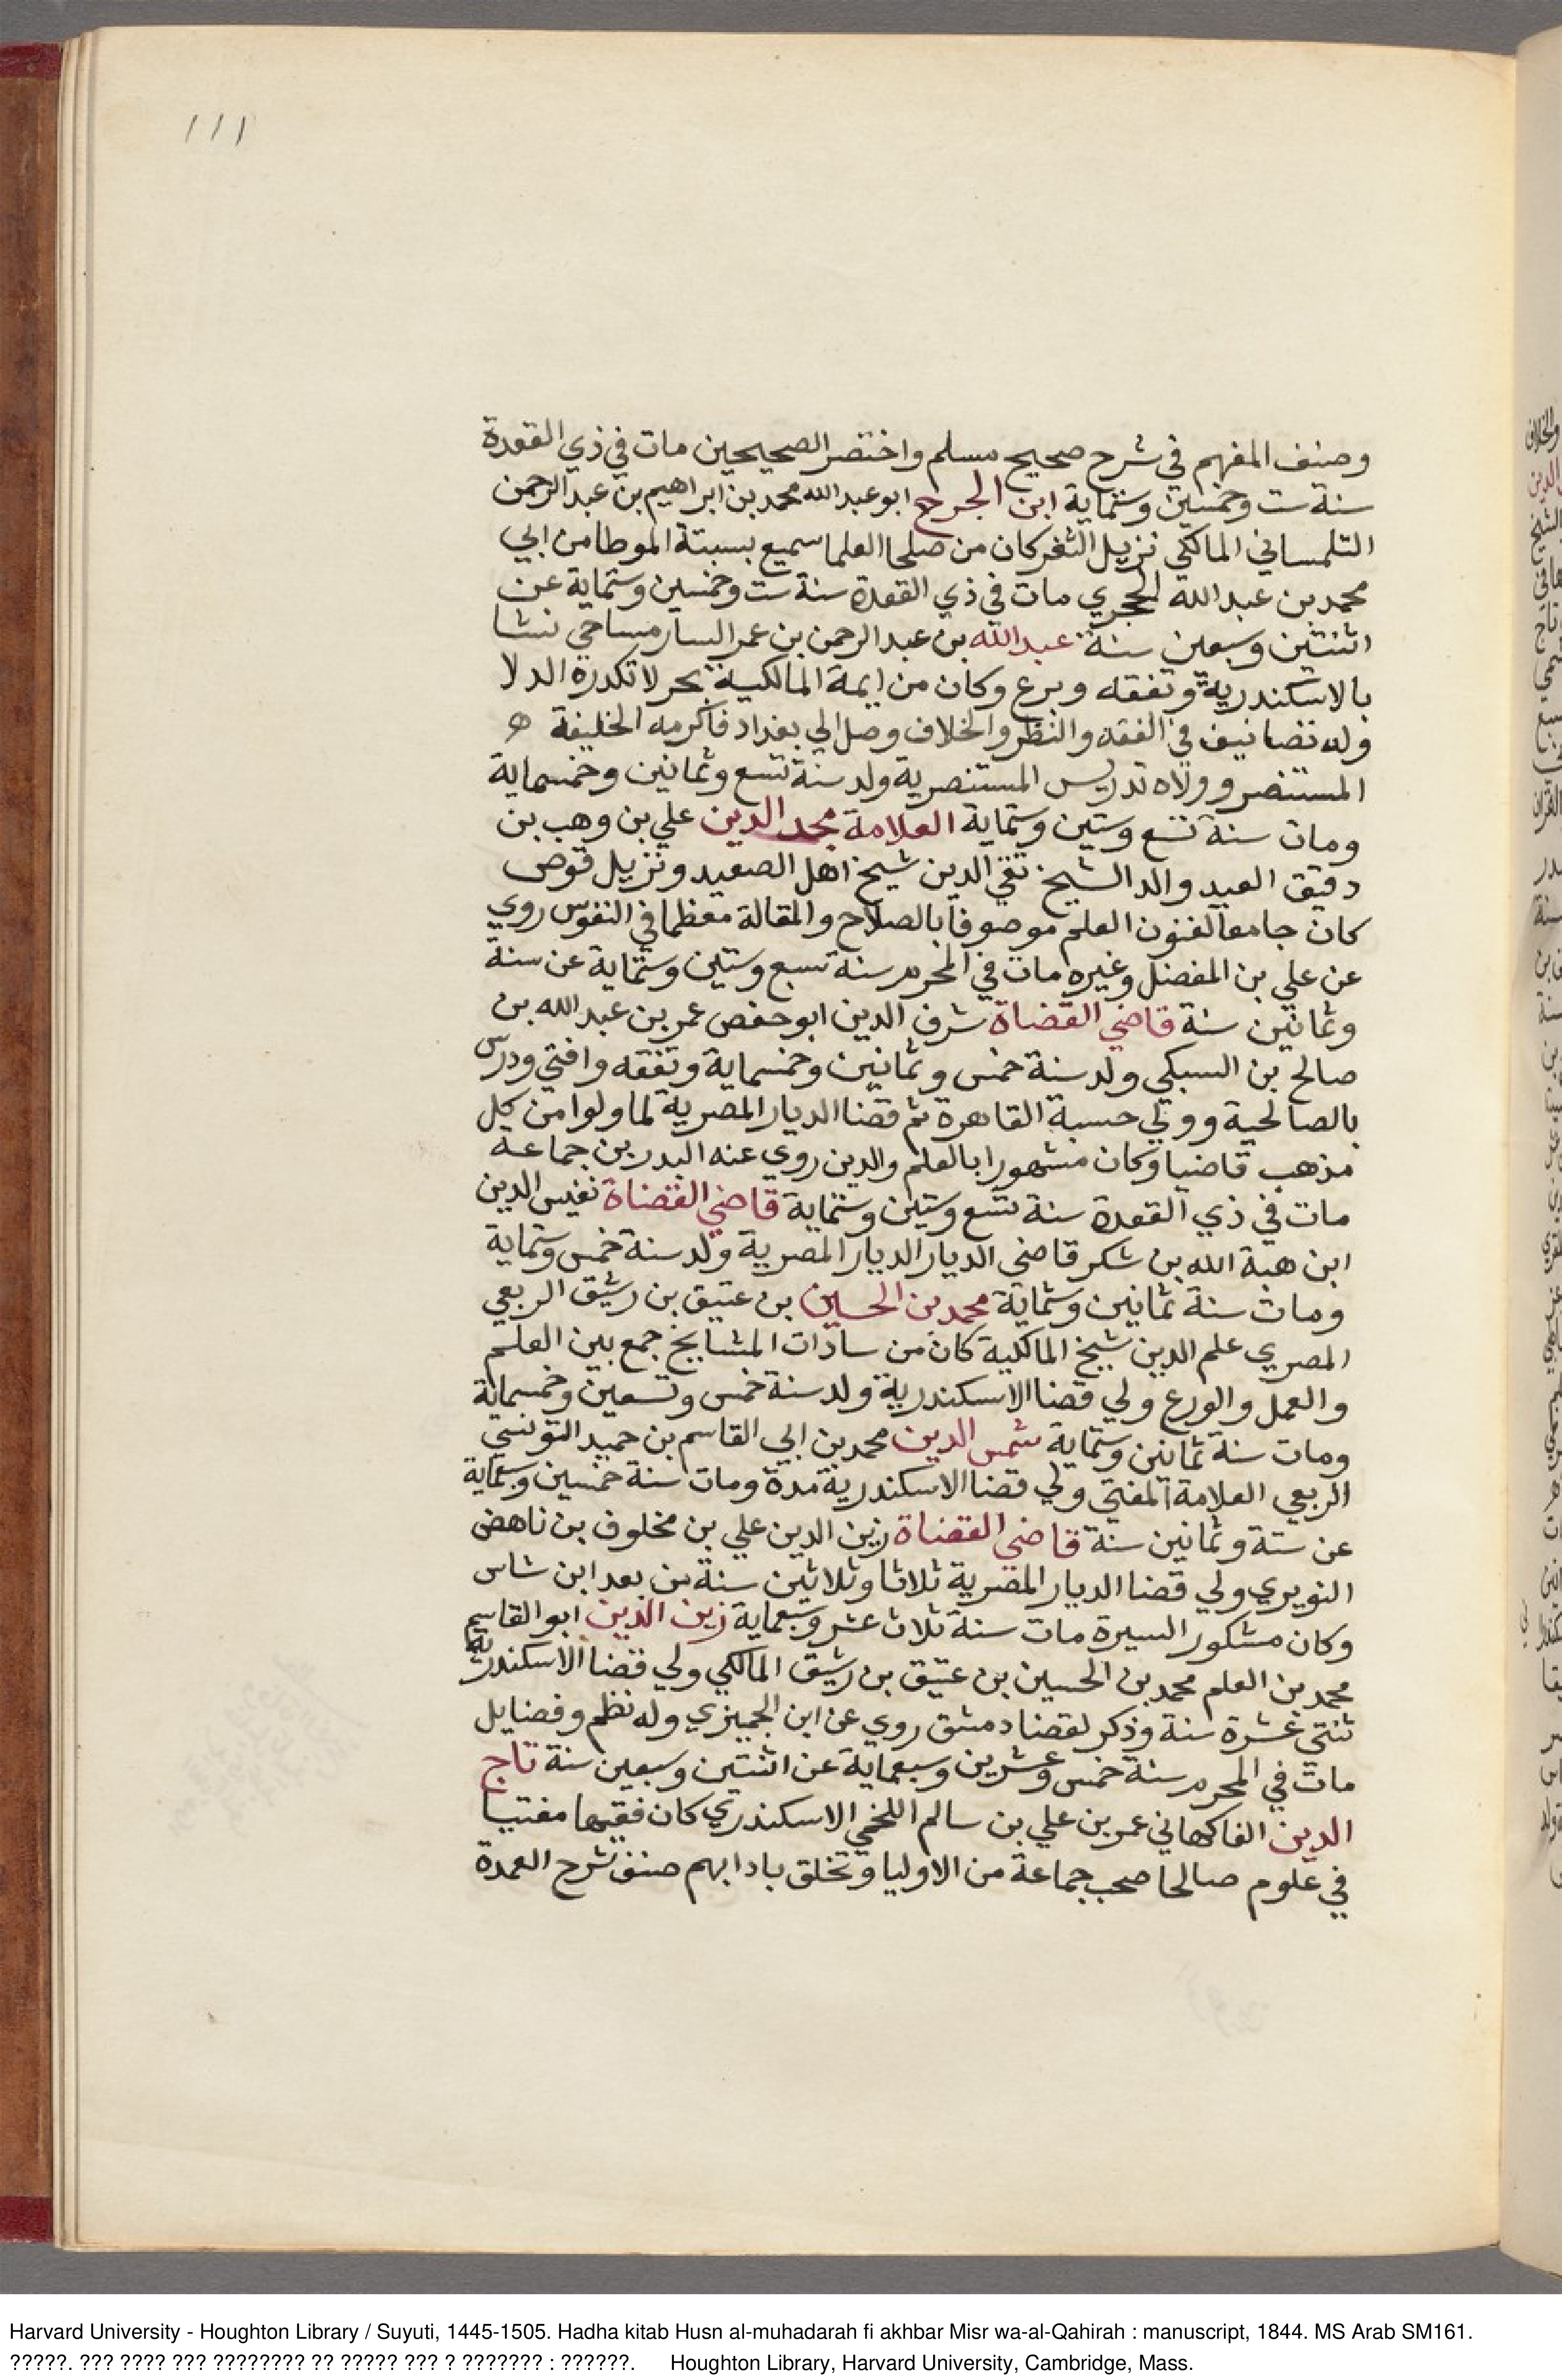 ١١١
وصنف المفهم في شرح صحيح مسلم واختصر الصحيحين مات في ذي القعدة
سنة ست وخمسين وستماية ابن الجرج ابو عبد الله محمد بن ابراهيم بن عبد الرحمن
التلمساني المالكي نزيل الثغر كان من صلحا العلما سميع بسبتة الموطا من ابي
محمد بن عبد الله الحجري مات في ذي القعدة سنة ست وخمسين وستماية عن
اثنتين وسبعين سنة عبد الله بن عبد الرحمن بن عمر البسارمساحي نشا
بالاسكندرية وتفقه وبرع وكان من ايمة المالكية بحر لا تكدره الدلا
وله تصانيف في الفقه والنظر والخلاف وصل الي بغداد فاكرمه الخليفة
المستنصر وولاه تدريس المستنصرية ولد سنة تسع وثمانين وخمسماية
ومات سنة تسع وستين وستماية العلامة مجد الدين علي بن وهب بن
دقيق العيد والد الشيخ تقي الدين شيخ اهل الصعيد ونزيل قوص
كان جامعا لفنون العلم موصوفا بالصلاح والمقالة معظما في النفوس روي
عن علي بن المفضل وغيره مات في المحرم سنة سبع وستين وستماية عن سنة
وثمانين سنة قاضي القضاة شرف الدين ابو حفص عمر بن عبد الله بن
صالح بن السبكي ولد سنة خمس وثمانين وخمسماية وتفقه وافتي ودرس
بالصالحية وولي حسبة القاهرة ثم قضا الديار المصرية لما ولوا من كل
مذهب قاضيا وكان مشهورا بالعلم والدين روي عنه البدر بن جماعة
مات في ذي القعدة سنة تسع وستين وستماية قاضي القضاة نفيس الدين
ابن هبة الله بن شكر قاضي الديار الديار المصرية ولد سنة خمس وستماية
ومات سنة ثمانين وستماية محمد بن الحسين بن عتيق بن رشيق الربعي
المصري علم الدين شيخ المالكية كان من سادات المشايخ جمع بين العلم
والعمل والورع ولي قضا الاسكندرية ولد سنة خمس وتسعين وخمسماية
ومات سنة ثمانين وستماية شمس الدين محمد بن ابي القاسم بن حميد التونسي
الربعي العلامة المفتي ولي قضا الاسكندرية مدة ومات سنة خمسين وسبعماية
عن ستة وثمانين سنة قاضي القضاة زين الدين علي بن مخلوف بن ناهض
النويري ولي قضا الديار المصرية ثلاثا وثلاثين سنة من بعد ابن شاس
وكان مشكور السيرة مات سنة ثلاث عشر وسبعماية زين الدين ابو القاسم
محمد بن العلم محمد بن الحسين بن عتيق بن رشيق المالكي ولي قضا الاسكندرية
ثنتي عشرة سنة وذكر لقضا دمشق روي عن ابن الجميزي وله نظم وفضايل
مات في المحرم سنة خمس وعشرين وسبعماية عن اثنتين وسبعين سنة تاج
الدين الفاكهاني عمر بن علي بن سالم اللخمي الاسكندري كان فقيها مفتيا
في علوم صالحا صحب جماعة من الاوليا وتخلق بادابهم صنف شرح العمدة
Harvard University - Houghton Library / Suyuti, 1445-1505. Hadha kitab Husn al-muhadarah fi akhbar Misr wa-al-Qahirah : manuscript, 1844. MS Arab SM161.
?????. ??? ???? ??? ???????? ?? ????? ??? ? ??????? : ??????. Houghton Library, Harvard University, Cambridge, Mass.